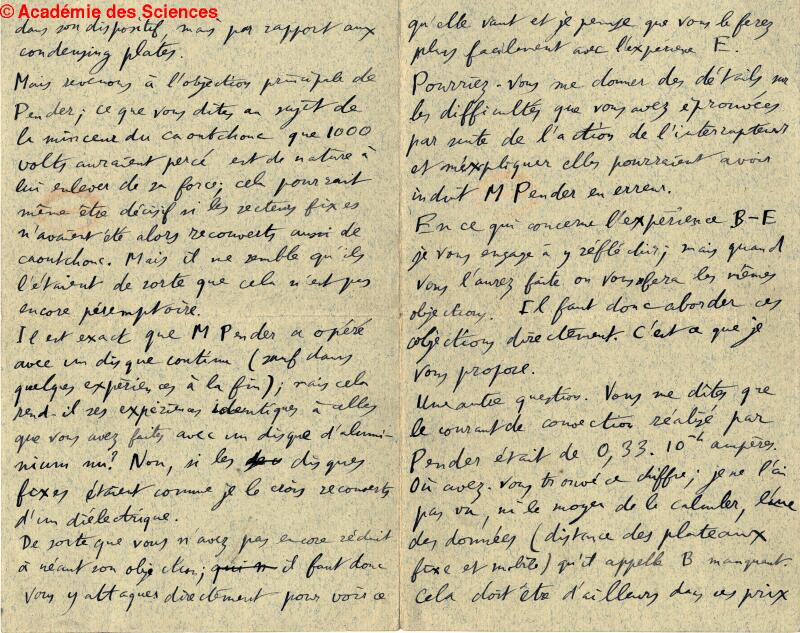 © Académie des Sciences
dans son dispositif, mais par rapport aux
condensing plates.
Mais revenons à l'objection principale de
Pender; ce que vous dites au sujet de
la minceur du caoutchouc que 1000
volts auraient percé est de nature à
lui enlever de sa force; cela pourrait
même être décisif si les secteurs fixes
n'avaient été alors recouverts aussi de
caoutchouc. Mais il me semble qu'ils
l'étaient de sorte que cela n'est pas
encore péremptoire.
Il est exact que M Pender a opéré
avec un disque continu (sauf dans
quelques expériences à la fin); mais cela
rend-il ses expériences identiques à celles
que vous avez faites avec un disque d'alumi-
nium nu? Non, si les disques
fixes étaient comme je le crois recouverts
d'un diélectrique.
De sorte que vous n'avez pas encore réduit
à néant son objection; il faut donc
vous y attaquer directement pour voir ce
qu'elle vaut et je pense que vous le ferez
plus facilement avec l'expérience E.
Pourriez-vous me donner des détails sur
les difficultés que vous avez éprouvées
par suite de l'action de l'interrupteur
et m'expliquer elles pourraient avoir
induit M Pender en erreur.
En ce qui concerne l'expérience B-E
je vous engage à y réfléchir; mais quand
vous l'aurez faite on vous fera les mêmes
objections. Il faut donc aborder ces
objections directement. C'est ce que je
vous propose.
Une autre question. Vous me dites que
le courant de convection réalisé par
Pender était de 0,33. 10⁻⁶ ampères.
Où avez-vous trouvé ce chiffre; je ne l'ai
pas vu, ni le moyen de le calculer, l'une
des données (distance des plateaux
fixe et mobile) qu'il appelle B manquent.
Cela doit être d'ailleurs dans ces prix